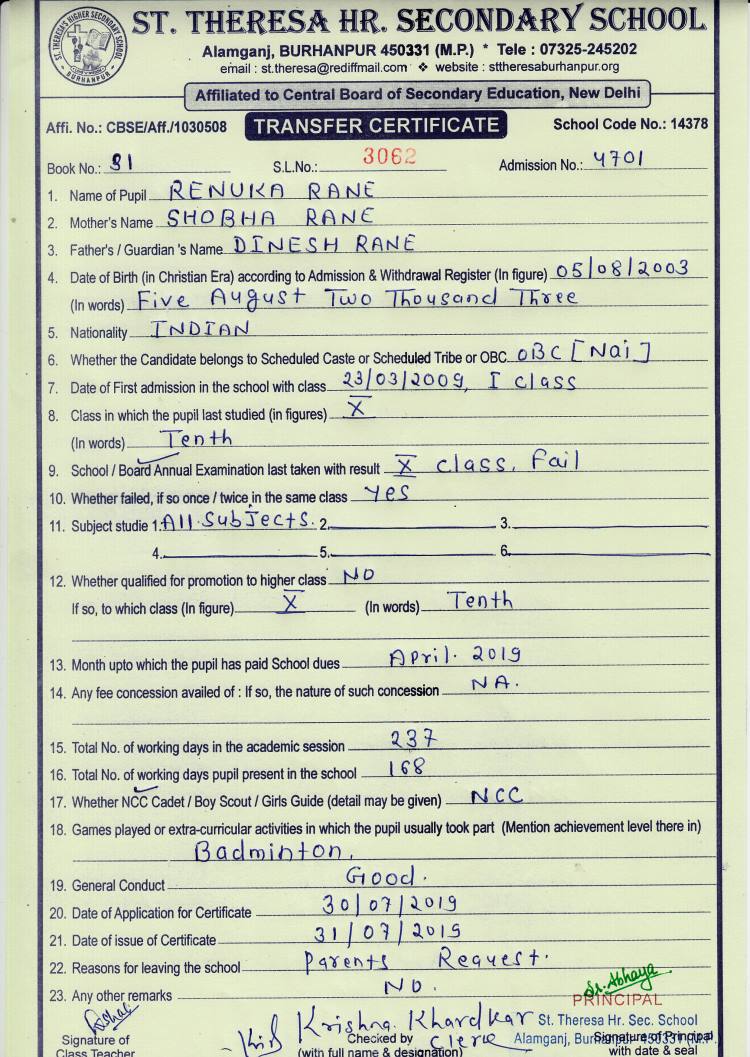 ST. THERESA HR. SECONDARY SCHOOL
ST. THERESA'S HIGHER SECONDARY SCHOOL
BURHANPUR
Alamganj, BURHANPUR 450331 (M.P.) * Tele : 07325-245202
email : st.theresa@rediffmail.com ❖ website : sttheresaburhanpur.org
Affiliated to Central Board of Secondary Education, New Delhi
Affi. No.: CBSE/Aff./1030508 TRANSFER CERTIFICATE School Code No.: 14378
Book No.: 31 S.L.No.: 3062 Admission No.: 4701
1. Name of Pupil RENUKA RANE
2. Mother's Name SHOBHA RANE
3. Father's / Guardian 's Name DINESH RANE
4. Date of Birth (in Christian Era) according to Admission & Withdrawal Register (In figure) 05/08/2003
(In words) Five August Two Thousand Three
5. Nationality INDIAN
6. Whether the Candidate belongs to Scheduled Caste or Scheduled Tribe or OBC OBC [Nai]
7. Date of First admission in the school with class 23/03/2009, I class
8. Class in which the pupil last studied (in figures) X
(In words) Tenth
9. School / Board Annual Examination last taken with result X class, Fail
10. Whether failed, if so once / twice in the same class Yes
11. Subject studie 1. All Subjects. 2. 3.
4. 5. 6.
12. Whether qualified for promotion to higher class NO
If so, to which class (In figure) X (In words) Tenth
13. Month upto which the pupil has paid School dues April. 2019
14. Any fee concession availed of : If so, the nature of such concession NA.
15. Total No. of working days in the academic session 237
16. Total No. of working days pupil present in the school 168
17. Whether NCC Cadet / Boy Scout / Girls Guide (detail may be given) NCC
18. Games played or extra-curricular activities in which the pupil usually took part (Mention achievement level there in)
Badminton.
19. General Conduct Good.
20. Date of Application for Certificate 30/07/2019
21. Date of issue of Certificate 31/07/2019
22. Reasons for leaving the school Parents Request.
23. Any other remarks NO.
Sr. Abhaya
PRINCIPAL
Krishna Khardkar St. Theresa Hr. Sec. School
Signature of Checked by Clerk Alamganj, Burhanpur 450331 (M.P.) Signature of Principal
Class Teacher (with full name & designation) with date & seal